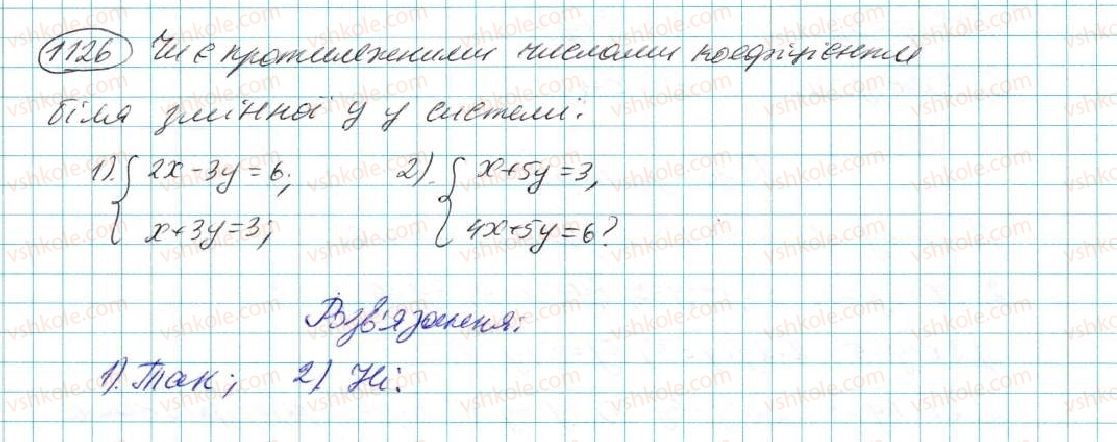 1126 Чи є протилежними числами коефіцієнти
біля змінної y у системі:
1). { 2x - 3y = 6, 2). { x + 5y = 3,
x + 3y = 3; 4x + 5y = 6?
Розв'язання:
1). Так; 2) Ні.